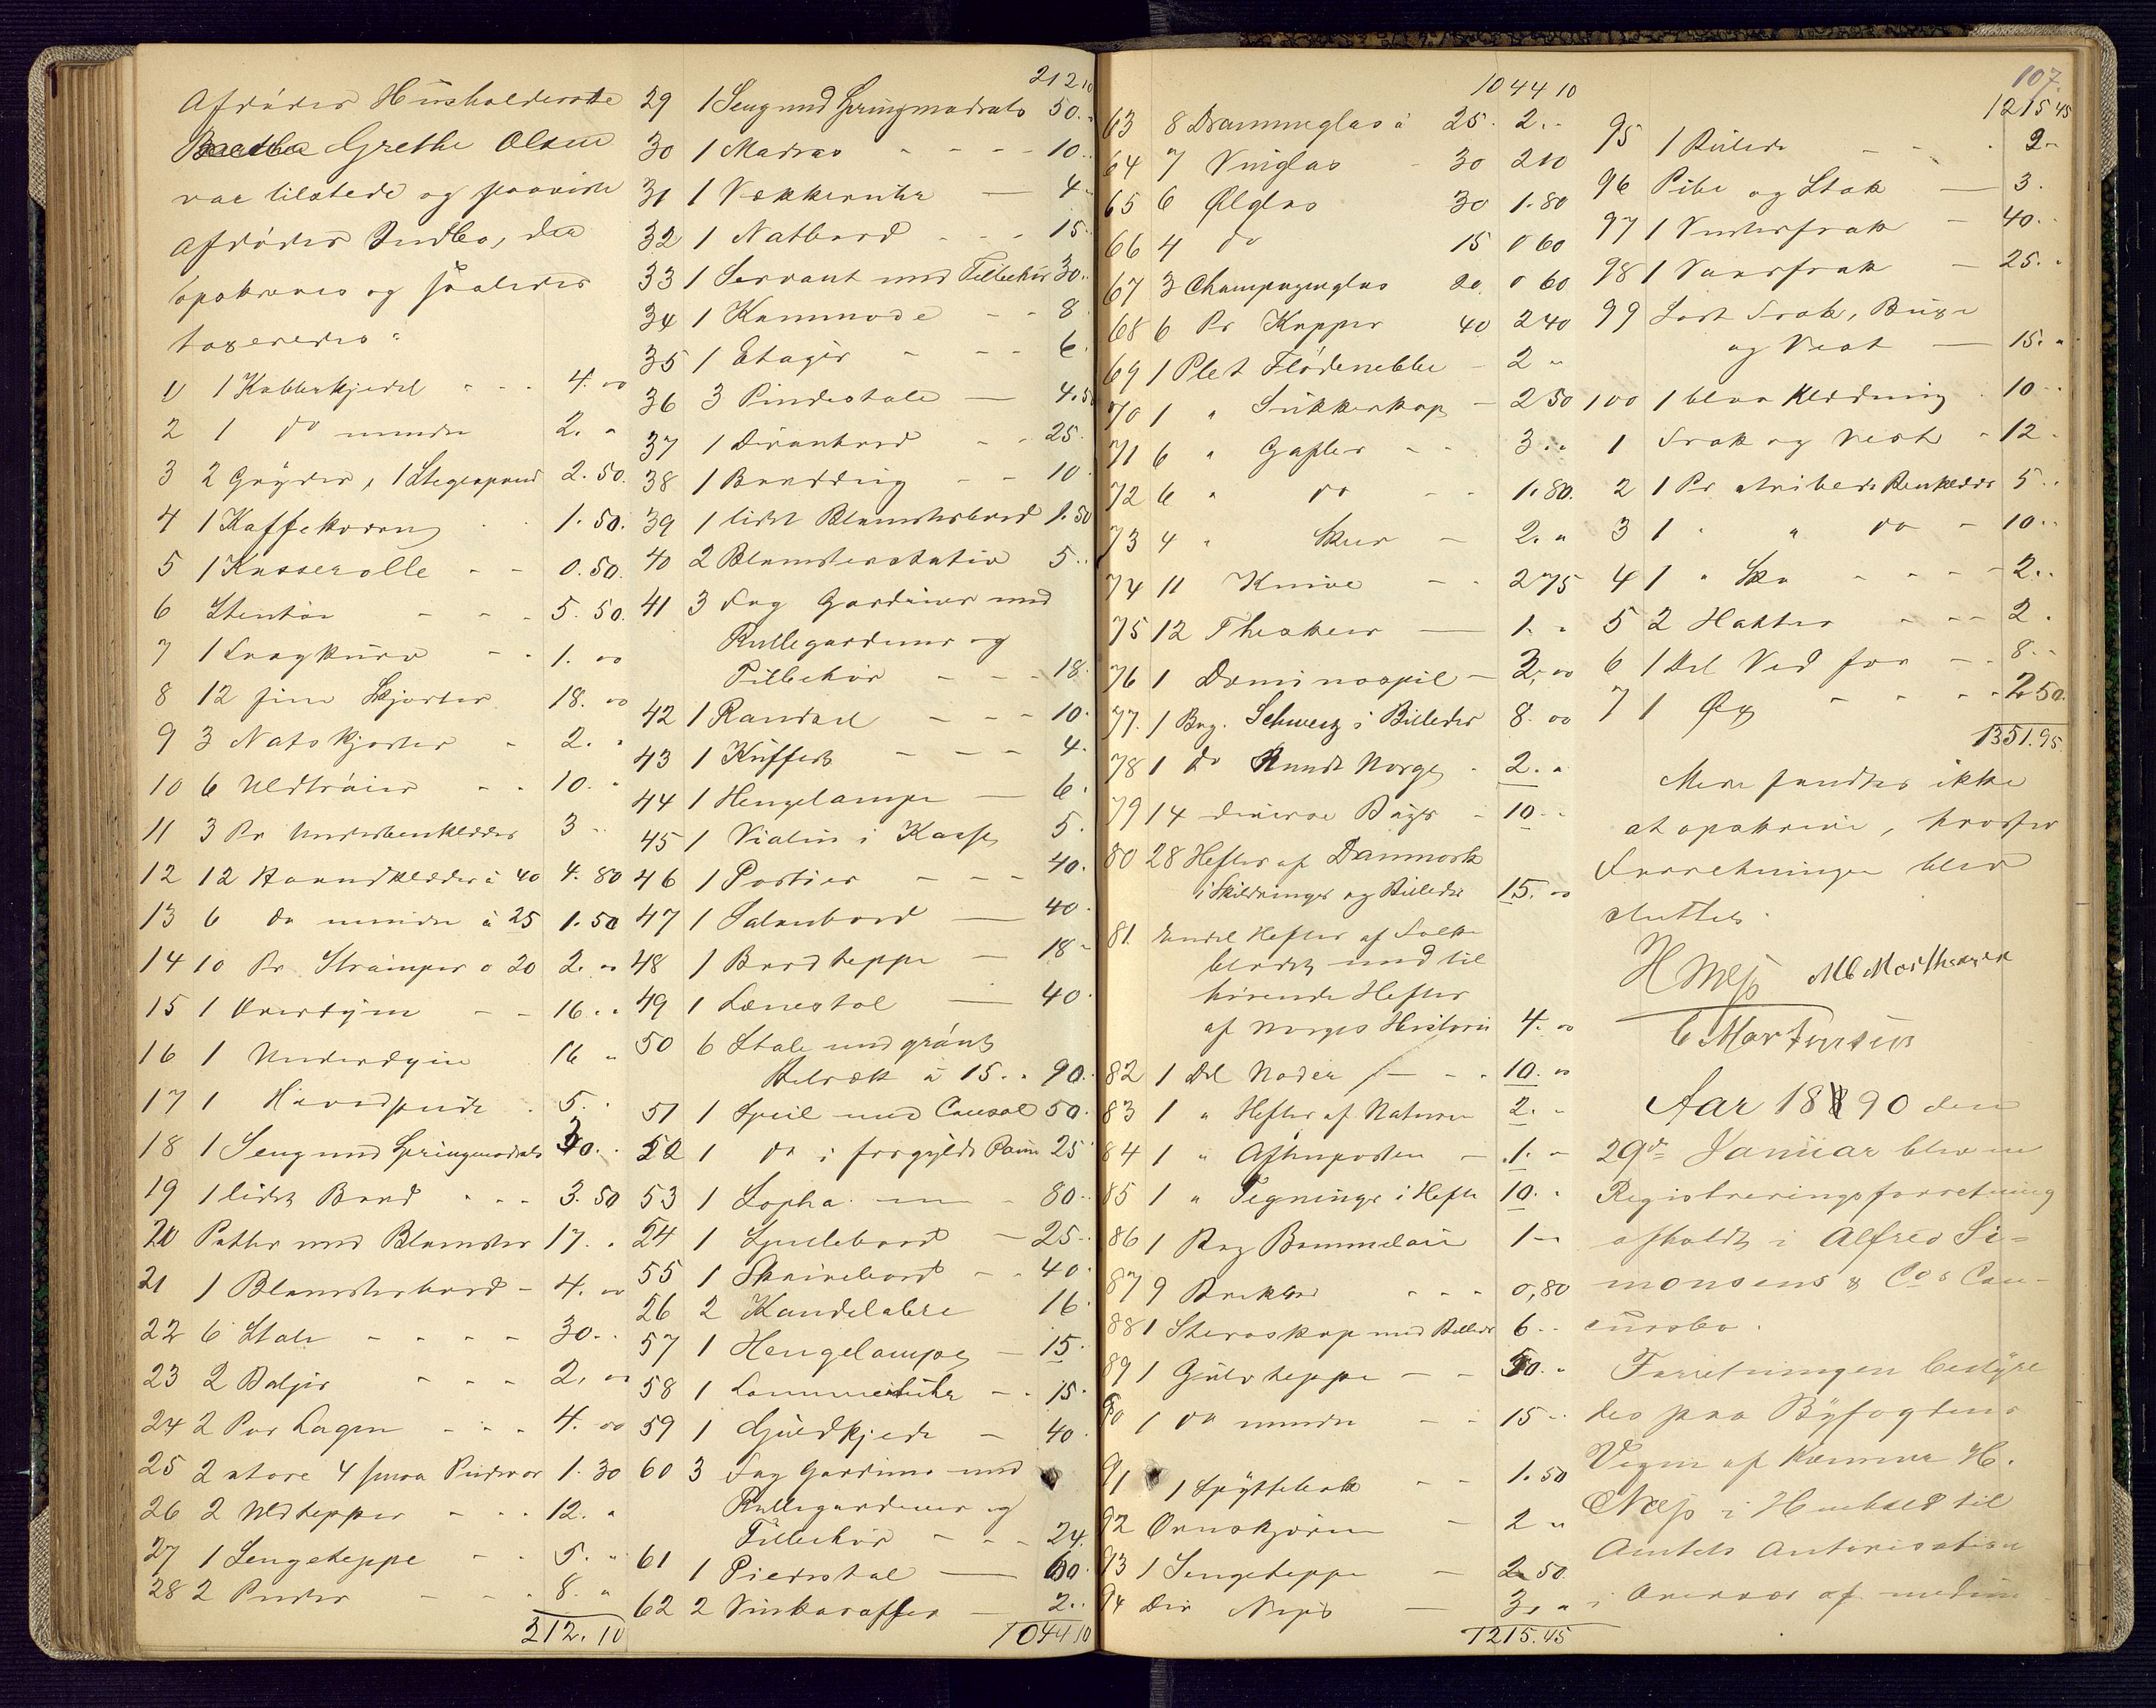 Afdødes Husholderske
Grethe Olsen
var tilstede og paaviste
Afdødes Indbo, der
opskreves og saaledes
taxeredes:
1 1 Kobberkjedel 4. 00
2 1 do mindre 2. "
3 2 Gryder, 1 Stegepand 2.50.
4 1 Kaffekværn 1.50.
5 1 Kasserolle 0.50.
6 Stentøi 5.50.
7 1 1. 00
8 12 fine Skjorter 18. 00
9 3 Natskjorter 2. "
10 6 Uldtrøier 10. "
11 3 Pr Underbenklæder 3 "
12 12 Haandklæder à 40 4.80
13 6 do mindre à 25 1.50
14 10 Pr. Strømper à 20 2. 00
15 1 Overdyne 16. "
16 1 Underdyne 16 "
17 1 Hovedpude 5. "
18 1 Seng med Springmadrats 30. "
19 1 lidet Bord 3.50
20 Potter med Blomster 17. "
21 1 Blomsterbord 4. 00
22 6 Stole 30. "
23 2 Baljer 2. 00
24 2 Par Lagen 4. 00
25 2 store 4 smaa Pudevar 1.30
26 2 Uldtepper 12. "
27 1 Sengeteppe 5. "
28 2 Puder 8. "
212.10
212 10
29 1 Seng med Springmadrats 50. "
30 1 Madras 10. "
31 1 Vækkeruhr 4 "
32 1 Natbord 15 "
33 1 Servant med Tilbehør 30. "
34 1 Kommode 8
35 1 Etagér 6.
36 3 Pindestole 4.50
37 1 Divanbord 25.
38 1 10.
39 1 lidet Blomsterbord 1.50
40 2 Blomsterstativ 5. "
41 3 Fag Gardiner med
Rullegardiner og
Tilbehør 18.
42 1 10.
43 1 Kuffert 4.
44 1 Hengelampe 6.
45 1 Violin i Kasse 5.
46 1 Portier 40.
47 1 Salonbord 40.
48 1 Bordteppe 18 "
49 1 Lænestol 40.
50 6 Stole med grønt
Betræk à 15. " 90. "
51 1 Speil med Consol 50.
52 1 do i forgyldt Ramme 25
53 1 Sopha 80. "
54 1 Spillebord 25. "
55 1 Skrivebord 40.
56 2 Kandelabre 16.
57 1 Hengelampe 15.
58 1 Lommeuhr 15.
59 1 Guldkjede 40.
60 3 Fag Gardiner med
Rullegardiner og
Tilbehør 24.
61 1 Piedestal 60.
62 2 Vinkarafler 2. "
1044 10
1044 10
63 8 Drammeglas à 25. 2. "
64 7 Vinglas 30 2 10
65 6 Ølglas 30 1.80
66 4 do 15 0 60
67 3 Champagneglas 20. 0 60
68 6 Pr Kopper 40 2 40
69 1 Plet Flødenebbe 2 "
70 1 " Sukkerkop 2 50
71 6 " Gafler 3. "
72 6 " do 1.80.
73 4 " Skeer 2. "
74 11 Knive 2 75
75 12 Theskeer 1. "
76 1 Dominospil 3. 00
77. 1 Bog. Schweiz i Billeder 8. 00
78 1 do Rundt Norge 2. "
79 14 diverse Bøger 10 "
80 28 Hefter af Danmark
i Skildringer og Billeder 15. 00
81. Endel Hefter af Folke
bladet med til
hørende Hefter
af Norges Historie 4. 00
82 1 Del Noder 10. 00
83 1 " Hefter af Naturen 2. "
84 1 " Aftenposten 1. "
85 1 " Tegninger i Hefte 10. "
86 1 Bag Bommeløie 1 "
87 9 Brikker 0,80
88 1 Steroskop med Billeder 6 "
89 1 Gulvteppe 50. "
90 1 do mindre 15 "
91 1 Spyttebak 1.50
92 Ovnskjærm 2 "
93 1 Sengeteppe 2 50
94 Div Nips 3. "
1215.45
107.
1215 45
95 1 2 "
96 Pibe og Stok 3.
97 1 Vinterfrak 40. "
98 1 Vaarfrak 25. "
99 Sort Frak, Buxe
og Vest 15. "
100 1 blaa Klædning 10 "
1 Frak og Vest 12.
2 1 Pr stribede Benklæder 5 "
3 1 " " do 10 "
4 1 " Sko 2. "
5 2 Hatter 2.
6 1 Del Ved for 8. "
7 1 Øx 2.50.
1351.95
Mere fandtes ikke
at opskrive, hvorfor
Forretningen blev
sluttet.
H Næss
C Martinsen
Aar 1890 den
29de Januar blev en
Registreringsforretning
afholdt i Alfred Si=
monsens & Co's Con-
cursbo.
Forretningen besty re
des paa Byfogdens
Vegne af Kæmner H.
Næss i Henhold til
Amtets Autorisation
i Overvær af